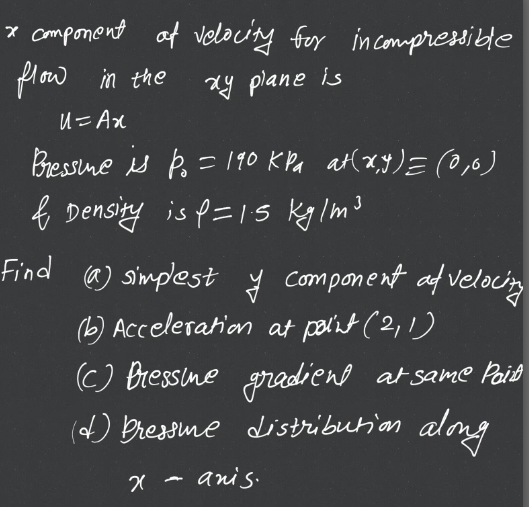 x component of velocity for incompressible
flow in the xy plane is
u = Ax
Pressure is p₀ = 190 KPa at (x,y) = (0,0)
& Density is ρ = 1.5 kg/m³
Find (a) simplest y component of velocity
(b) Acceleration at point (2,1)
(c) Pressure gradient at same Point
(d) Pressure distribution along
x - axis.